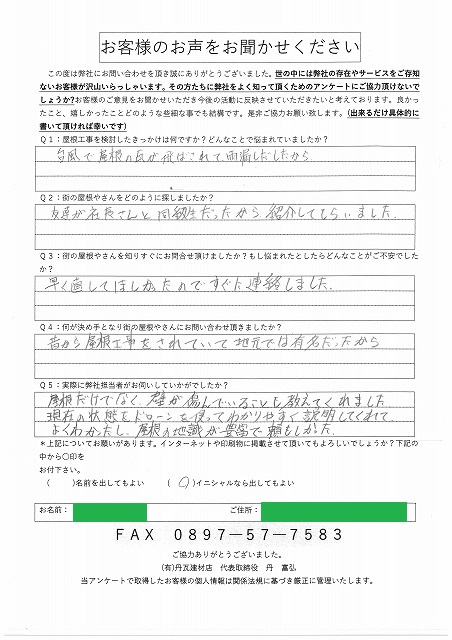 お客様のお声をお聞かせください
この度は弊社にお問い合わせを頂き誠にありがとうございました。世の中には弊社の存在やサービスをご存知
ないお客様が沢山いらっしゃいます。その方たちに弊社をよく知って頂くためのアンケートにご協力頂けないで
しょうか?お客様のご意見をお聞かせいただき今後の活動に反映させていただきたいと考えております。良かっ
たこと、嬉しかったことどのような些細な事でも結構です。是非ご協力お願い致します。(出来るだけ具体的に
書いて頂ければ幸いです)
Q1:屋根工事を検討したきっかけは何ですか?どんなことで悩まれていましたか?
台風で屋根の瓦が飛ばされて雨漏しだしたから
Q2:街の屋根やさんをどのように探しましたか?
友達が社長さんと同級生だったから紹介してもらいました.
Q3:街の屋根やさんを知りすぐにお問合せ頂けましたか?もし悩まれたとしたらどんなことがご不安でした
か?
早く直してほしかったのですぐに連絡しました.
Q4:何が決め手となり街の屋根やさんにお問い合わせ頂きましたか?
昔から屋根工事をされていて地元では有名だったから
Q5:実際に弊社担当者がお伺いしていかがでしたか?
屋根だけでなく、壁が傷んでいることも教えてくれました
現在の状態をドローンを使ってわかりやすく説明してくれて
よくわかったし、屋根の知識が豊富で頼もしかった.
＊上記についてお願いがあります。インターネットや印刷物に掲載させて頂いてもよろしいでしょうか?下記の
中から○印を
お付下さい。
( )名前を出してもよい ( ○ )イニシャルなら出してもよい
お名前: ご住所:
FAX 0897-57-7583
ご協力ありがとうございました。
(有)丹瓦建材店 代表取締役 丹 富弘
当アンケートで取得したお客様の個人情報は関係法規に基づき厳正に管理いたします。